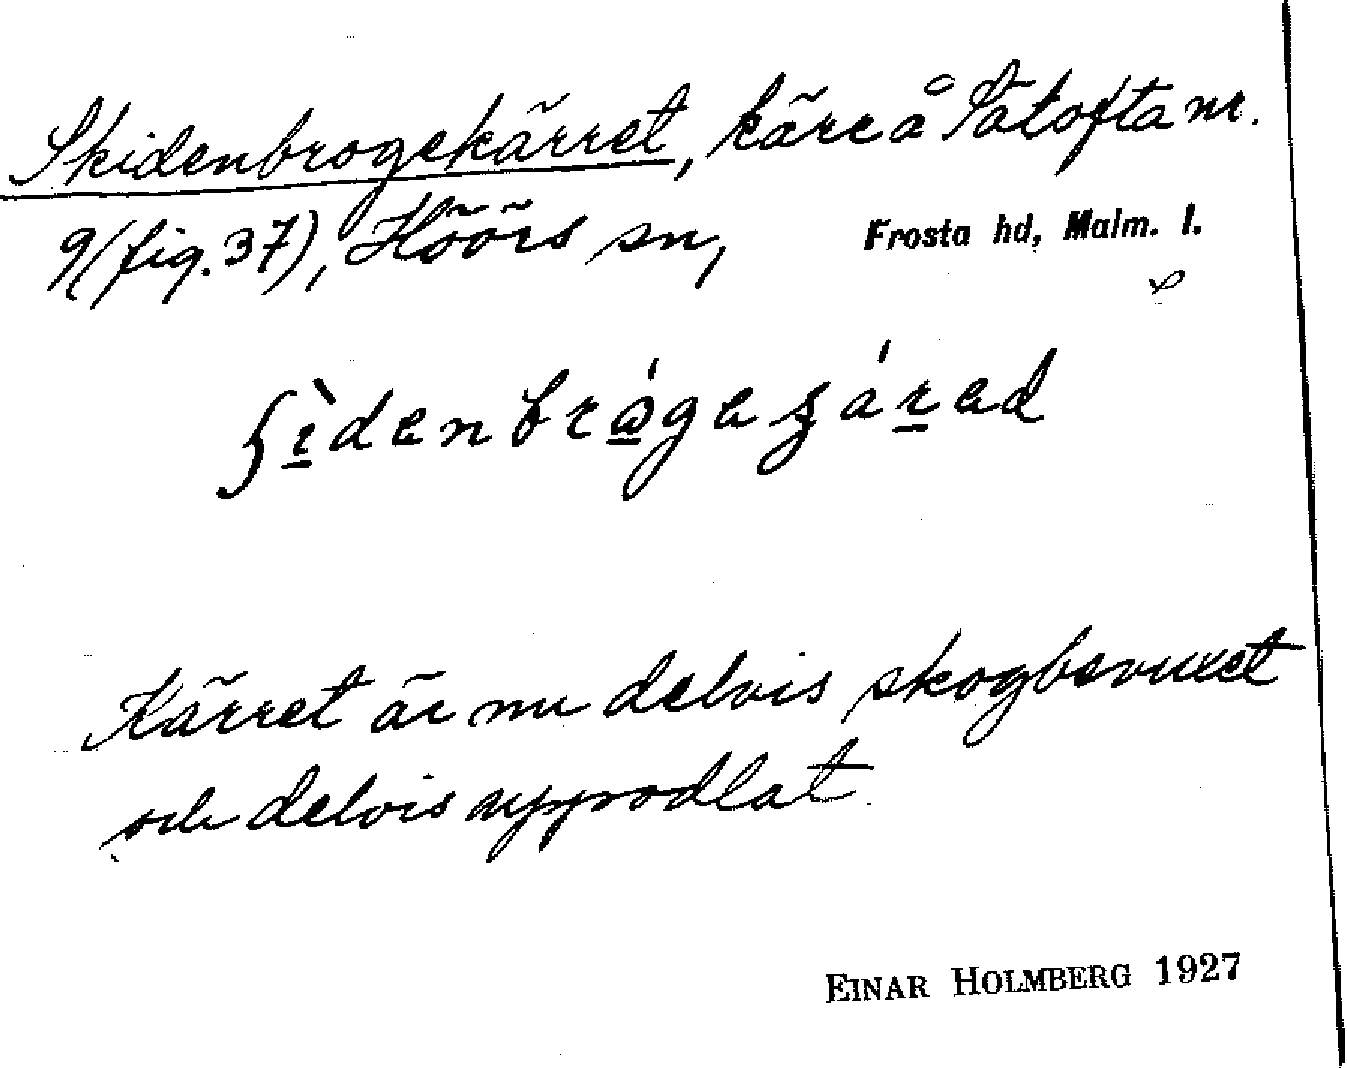 Skidenbrogekärret, kärr å Tåtofta nr.
9 (fig. 37), Höörs sn, Frosta hd, Malm. l.
Kärret är nu delvis skogbevuxet
och delvis uppodlat.
EINAR HOLMBERG 1927